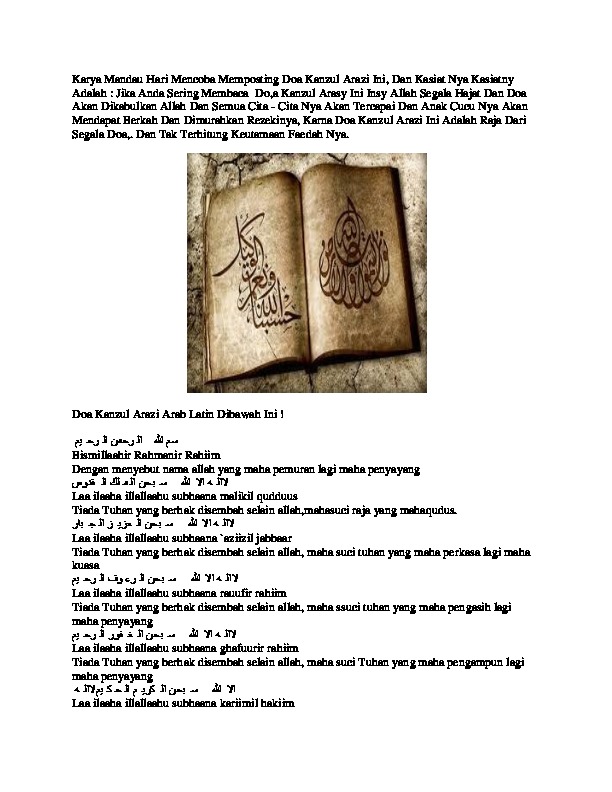 Karya Mandau Hari Mencoba Memposting Doa Kanzul Arazi Ini, Dan Kasiat Nya Kasiatny
Adalah : Jika Anda Sering Membaca Do,a Kanzul Arasy Ini Insy Allah Segala Hajat Dan Doa
Akan Dikabulkan Allah Dan Semua Cita - Cita Nya Akan Tercapai Dan Anak Cucu Nya Akan
Mendapat Berkah Dan Dimurahkan Rezekinya, Karna Doa Kanzul Arazi Ini Adalah Raja Dari
Segala Doa,. Dan Tak Terhitung Keutamaan Faedah Nya.
حسبنا الله ونعم الوكيل
الله نور السموات والأرض
Doa Kanzul Arazi Arab Latin Dibawah Ini !
سم الله الرحمن الرحيم
Bismillaahir Rahmanir Rahiim
Dengan menyebut nama allah yang maha pemuran lagi maha penyayang
لااله الا الله سبحن الملك القدوس
Laa ilaaha illallaahu subhaana malikil qudduus
Tiada Tuhan yang berhak disembah selain allah,mahasuci raja yang mahaqudus.
لااله الا الله سبحن العزيز الجبار
Laa ilaaha illallaahu subhaana `aziizil jabbaar
Tiada Tuhan yang berhak disembah selain allah, maha suci tuhan yang maha perkasa lagi maha
kuasa
لااله الا الله سبحن الرءوف الرحيم
Laa ilaaha illallaahu subhaana rauufir rahiim
Tiada Tuhan yang berhak disembah selain allah, maha ssuci tuhan yang maha pengasih lagi
maha penyayang
لااله الا الله سبحن الغفور الرحيم
Laa ilaaha illallaahu subhaana ghafuurir rahiim
Tiada Tuhan yang berhak disembah selain allah, maha suci Tuhan yang maha pengampun lagi
maha penyayang
الا الله سبحن الكريم الحكيم لااله
Laa ilaaha illallaahu subhaana kariimil hakiim